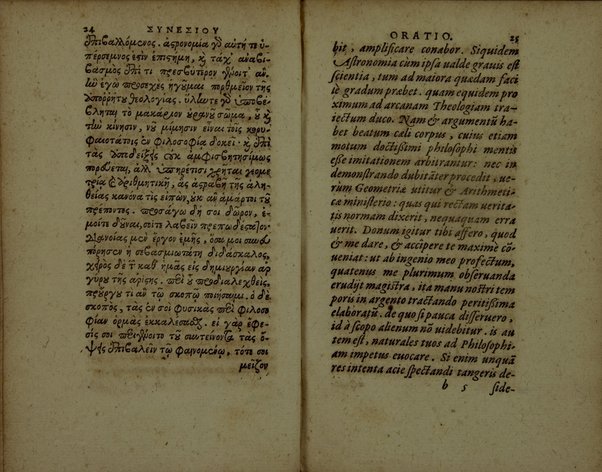 24 ΣΥΝΕΣΙΟΥ
ἐπιβαλλόμενος. ἀστρονομία γὸ αὐτή τε ὑ-
πέρσεμνος ἐστὶν ἐπιστήμη, κ̀ τάχ᾽ ἀναβι-
βασμὸς ἐπί τι πρεσβύτερον γένοιτ᾽ ἂν.
ὃν ἐγὼ προσεχὲς ἡγοῦμαι πορθμεῖον ἐπὶ
ἀπόρρητον θεολογίας. ὕλη τε γὸ ὑποβέ-
βληται τὸ μακάριον οὐρανοῦ σῶμα, οὗ κ̀
τὴν κίνησιν, νοῦ μίμησιν εἶναι τοῖς κορυ-
φαιοτάτοις ἐν φιλοσοφίᾳ δοκεῖ. κ̀ ἐπὶ
τὰς ὑποδείξεις οὐκ ἀμφισβητησίμως
πορεύεται, ἀλλ᾽ ὑπηρέτισι χρῆται γεωμε-
τρίᾳ κ̀ ἀριθμητικῇ, ἃς ἀστραβῆ τῆς ἀλη-
θείας κανόνα τὶς εἰπὼν, οὐκ ἂν ἁμάρτοι τοῦ
πρέποντος. προσάγω δή σοι δῶρον, ἐ-
μοί τε δοῦναι, σοί τε λαβεῖν πρεπωδέστατον
διανοίας μὲν ἔργον ἐμῆς, ὅσα μοι συνε-
πόρησεν ἡ σεβασμιωτάτη διδάσκαλος,
χειρὸς δὲ τῆς καθ᾽ ἡμᾶς εἰς δημιουργίαν ἀρ-
γύρου τῆς ἀρίστης. περὶ οὗ προδιαλεχθεὶς,
προὔργου τι ἂν τῷ σκοπῷ ποιήσαιμι. ὁ δὲ
σκοπὸς, τὰς ἐν σοὶ φυσικὰς περὶ φιλοσο-
φίαν ὁρμὰς ἐκκαλέσασθαι. εἰ γὰρ ἔφε-
σίς σοι περιγένοιτο τοῦ συντείνοντα τὰς ὄ-
ψεις ἐπιβαλεῖν τῷ φαινομένῳ, τότε σοι
μεῖζον
ORATIO. 25
bit, amplificare conabor. Siquidem
Astronomia cùm ipsa ualde grauis est
scientia, tum ad maiora quædam faci
lè gradum præbet. quam equidem pro
ximum ad arcanam Theologiam tra-
iectum duco. Nam & argumentũ ha-
bet beatum cæli corpus, cuius etiam
motum doctißimi philosophi mentis
esse imitationem arbitrantur: nec in
demonstrando dubitãter procedit, ue-
rùm Geometriæ utitur & Arithmeti-
cæ ministerio: quas qui rectam uerita-
tis normam dixerit, nequaquam erra
uerit. Donum igitur tibi affero, quod
& me dare, & accipere te maximè cõ-
ueniat: ut ab ingenio meo profectum,
quatenus me plurimum obseruanda
erudijt magistra, ita manu nostri tem
poris in argento tractando peritißima
elaboratũ. de quo si pauca disseruero,
id à scopo alienum nõ uidebitur. is au
tem est, naturales tuos ad Philosophi-
am impetus euocare. Si enim unquã
res intenta acie spectandi tangeris de-
b 5 side-